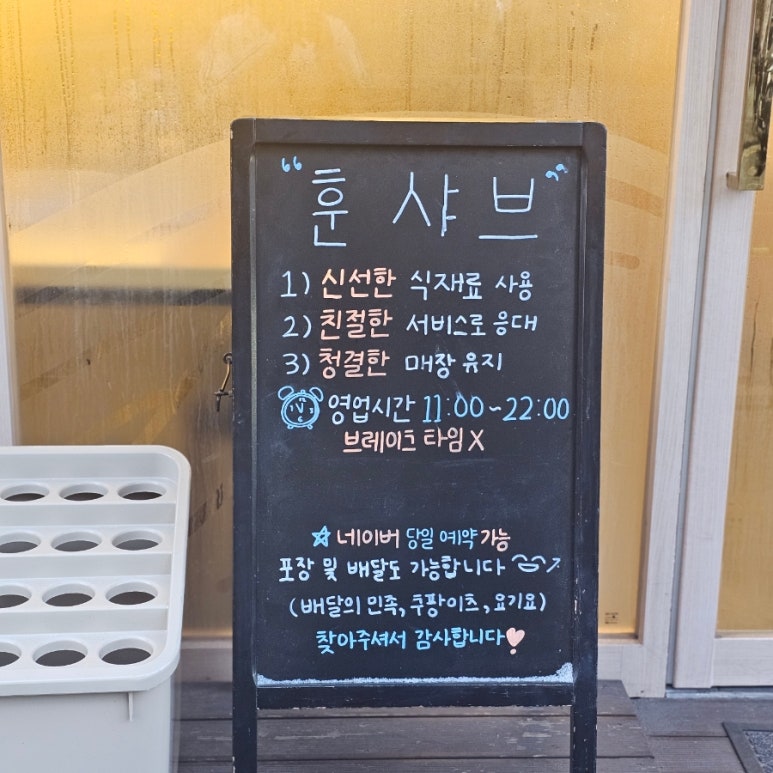 “훈 샤브”
1) 신선한 식재료 사용
2) 친절한 서비스로 응대
3) 청결한 매장 유지
영업시간 11:00~22:00
브레이크 타임 X
☆ 네이버 당일 예약 가능
포장 및 배달도 가능합니다
(배달의 민족, 쿠팡이츠, 요기요)
찾아주셔서 감사합니다♥